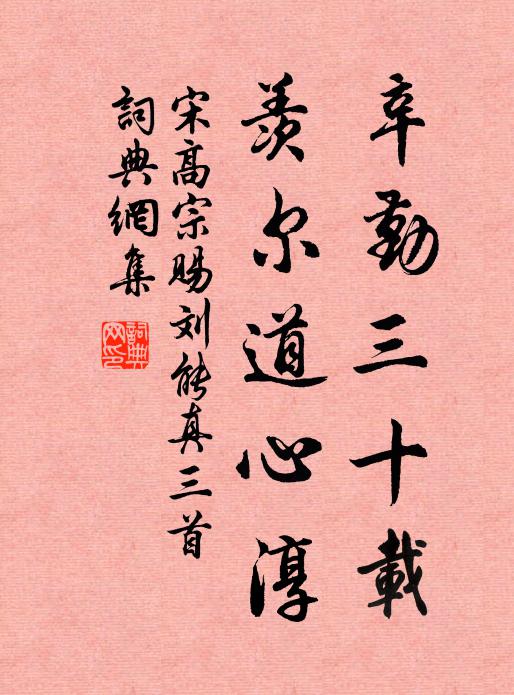 辛勤三十載
羨尔道心淳
宋髙宗賜刘能真三首
詞典網集
詞典网印